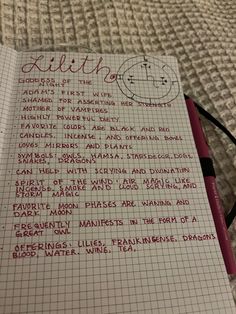 Lilith
GODDESS OF THE
NIGHT
ADAM'S FIRST WIFE
SHAMED FOR ASSERTING HER STRENGTH
MOTHER OF VAMPIRES
HIGHLY POWERFUL DEITY
FAVORITE COLORS ARE BLACK AND RED
CANDLES, INCENSE, AND OFFERING BOWL
LOVES MIRRORS AND PLANTS
SYMBOLS: OWLS, HAMSA, STARS,
SNAKES, DRAGONS
CAN HELP WITH SCRYING AND DIVINATION
SPIRIT OF THE WIND: AIR MAGIC LIKE
INCENSE, SMOKE AND CLOUD SCRYING, AND
STORM MAGIC
FAVORITE MOON PHASES ARE WANING AND
DARK MOON
FREQUENTLY MANIFESTS IN THE FORM OF A
GREAT OWL
OFFERINGS: LILIES, FRANKINSENSE, DRAGONS
BLOOD, WATER, WINE, TEA,